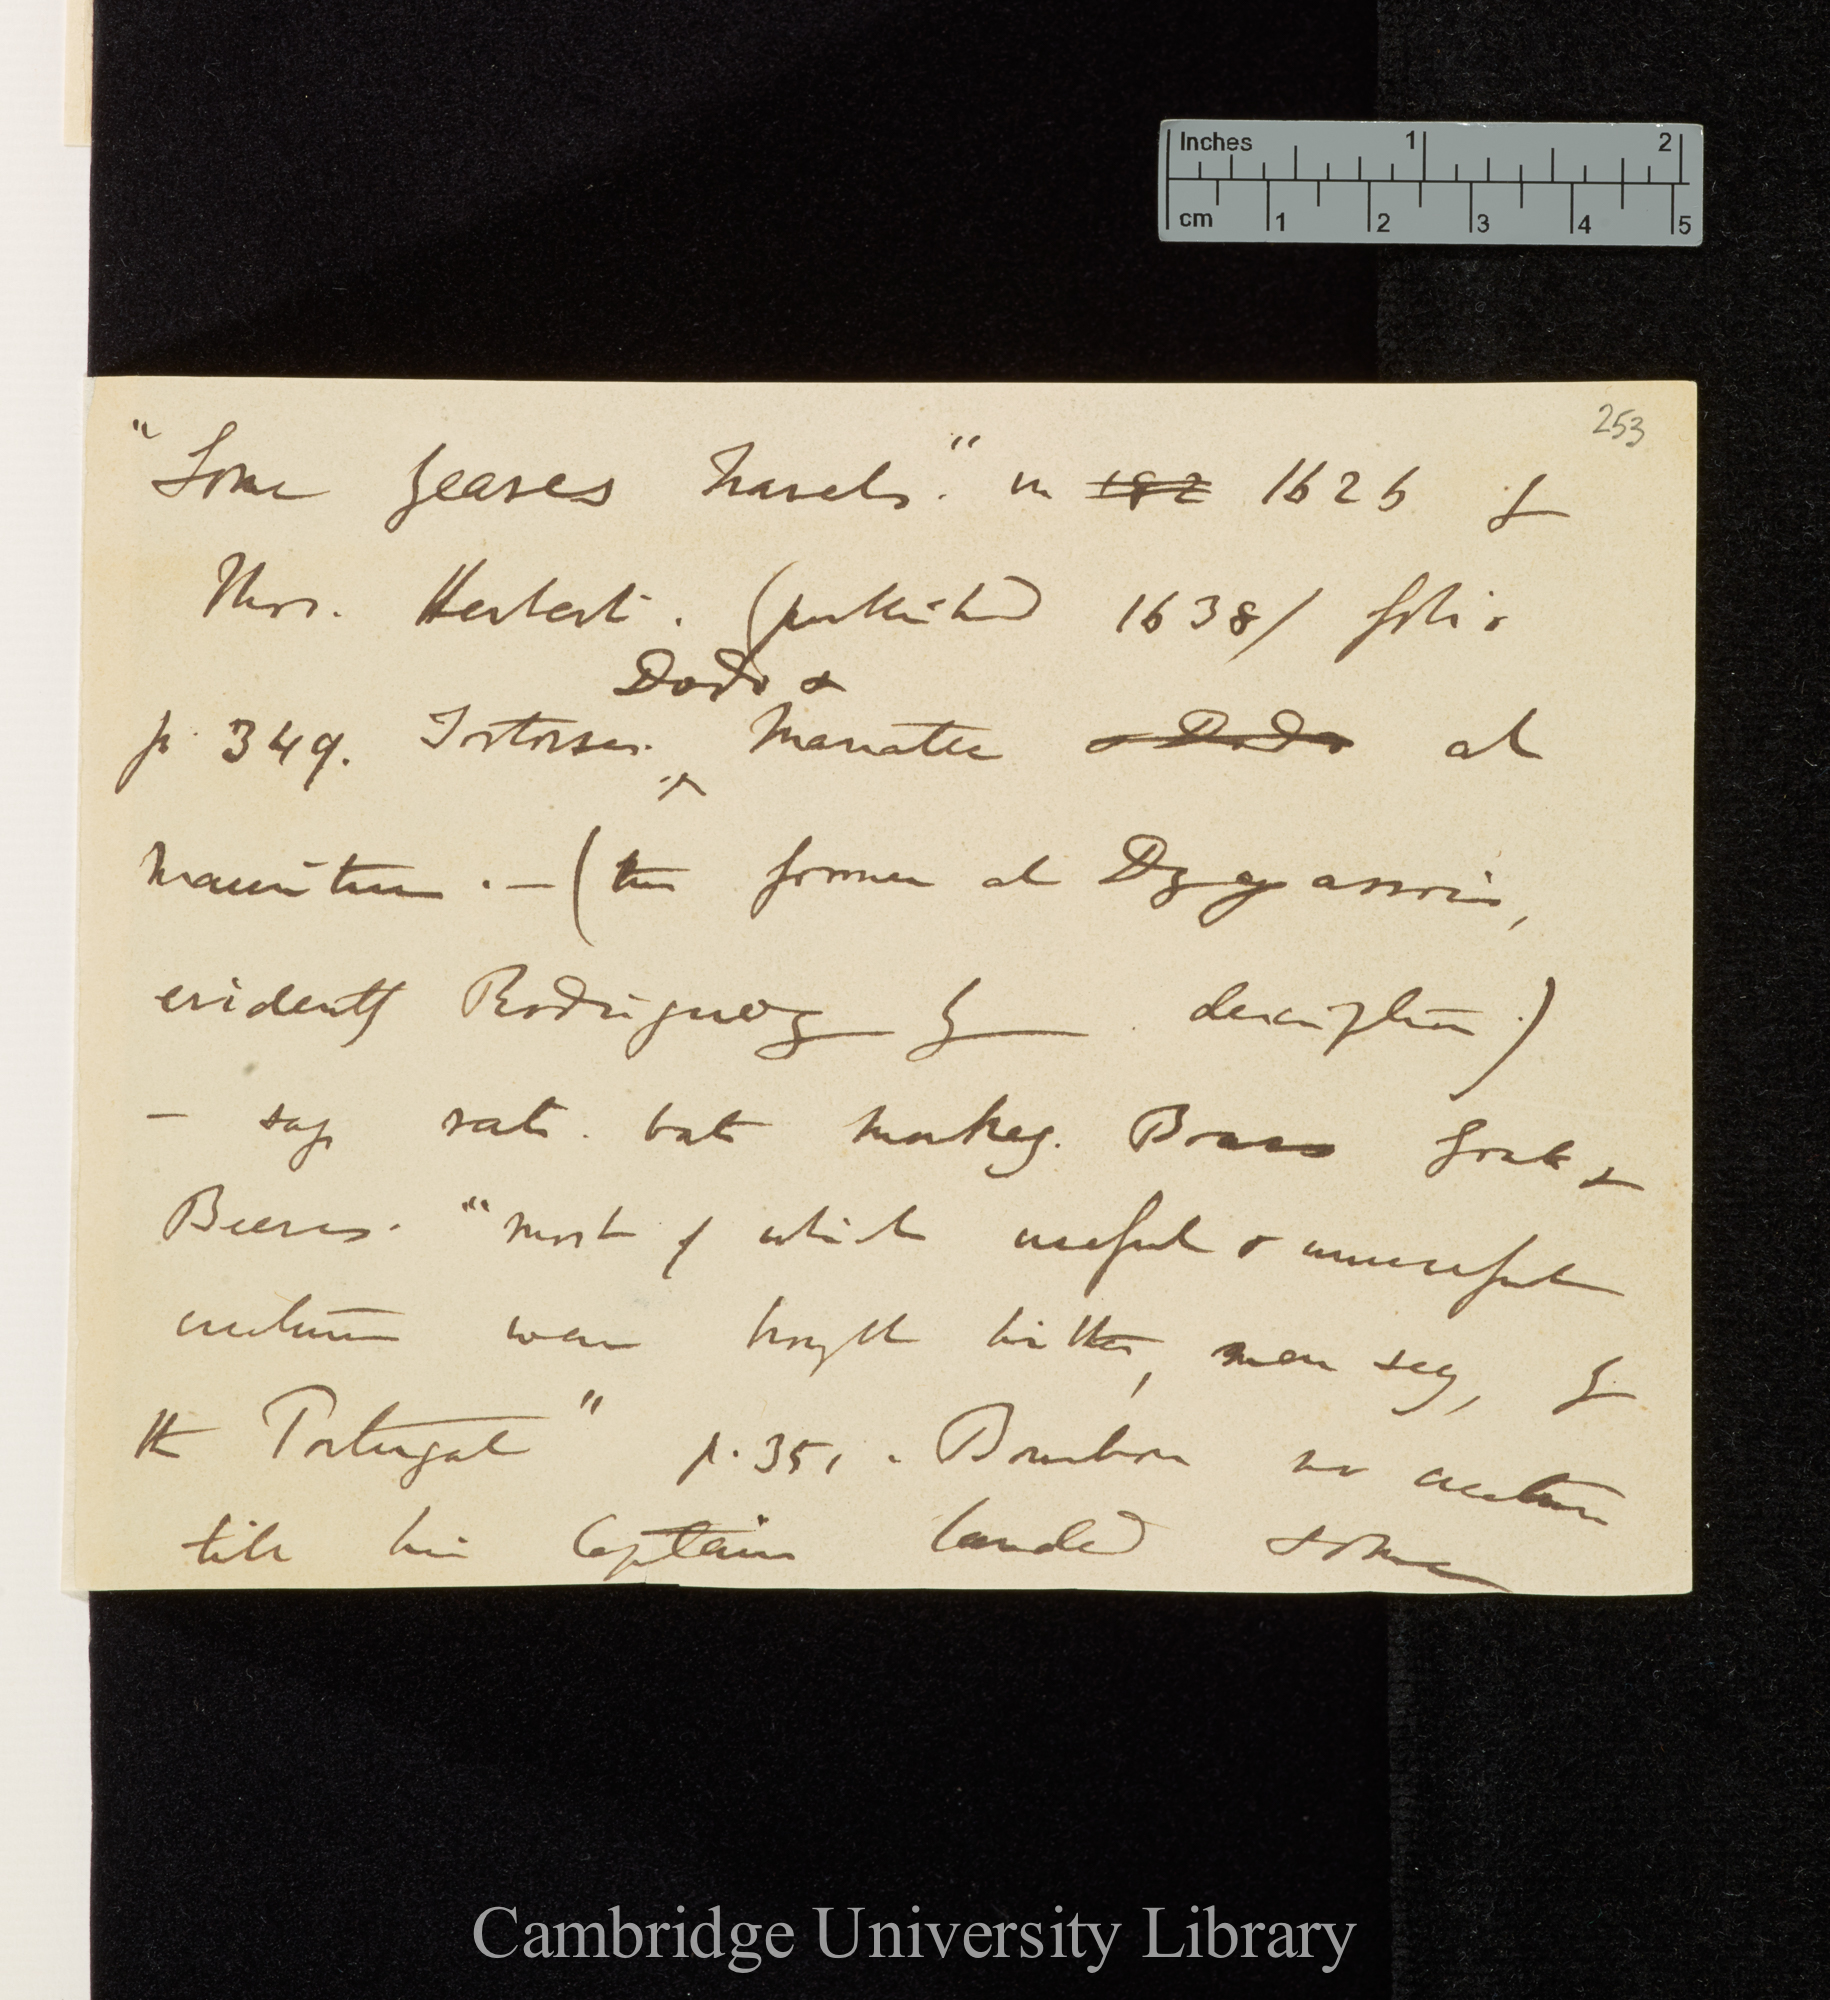 Inches 1 2
cm 1 2 3 4 5
253
"Some yeares travels." in 182 1626 by
Thos. Herbert. (published 1638/ folio
Dodo &
p. 349. Tortoises. ^ Manatee & Dodo at
Mauritius. — (the former at Dygarrois,
evidently Rodriguez by description.)
— says rats. bats monkeys. Goats &
Beeves. "most of which useful & unuseful
creatures were brought hither, men say, by
the Portugal" p. 351. Bourbon no creature
till his Captain landed some
Cambridge University Library